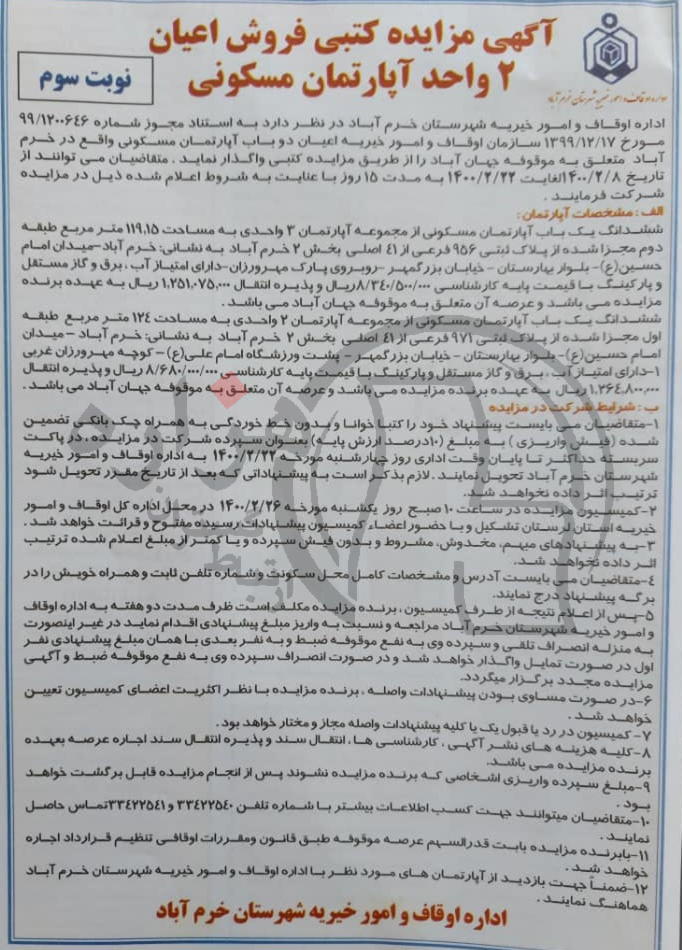 آگهی مزایده کتبی فروش اعیان
۲ واحد آپارتمان مسکونی
نوبت سوم
اداره اوقاف و امور خیریه شهرستان خرم آباد
اداره اوقاف و امور خیریه شهرستان خرم آباد در نظر دارد به استناد مجوز شماره ۹۹/۱۲۰۰۶۴۶
مورخ ۱۳۹۹/۱۲/۱۷ سازمان اوقاف و امور خیریه اعیان دو باب آپارتمان مسکونی واقع در خرم
آباد متعلق به موقوفه جهان آباد را از طریق مزایده کتبی واگذار نماید . متقاضیان می توانند از
تاریخ ۱۴۰۰/۲/۸ لغایت ۱۴۰۰/۲/۲۲ به مدت ۱۵ روز با عنایت به شروط اعلام شده ذیل در مزایده
شرکت فرمایند .
الف : مشخصات آپارتمان :
ششدانگ یک باب آپارتمان مسکونی از مجموعه آپارتمان ۳ واحدی به مساحت ۱۱۹,۱۵ متر مربع طبقه
دوم مجزا شده از پلاک ثبتی ۹۵۶ فرعی از ۴۱ اصلی بخش ۲ خرم آباد به نشانی: خرم آباد-میدان امام
حسین(ع)- بلوار بهارستان - خیابان بزرگمهر -روبروی پارک مهرورزان-دارای امتیاز آب ، برق و گاز مستقل
و پارکینگ با قیمت پایه کارشناسی ۸/۳۴۰/۵۰۰/۰۰۰ریال و پذیره انتقال ۱,۲۵۱,۰۷۵,۰۰۰ ریال به عهده برنده
مزایده می باشد و عرصه آن متعلق به موقوفه جهان آباد می باشد .
ششدانگ یک باب آپارتمان مسکونی از مجموعه آپارتمان ۲ واحدی به مساحت ۱۲۴ متر مربع طبقه
اول مجزا شده از پلاک ثبتی ۹۷۱ فرعی از ۴۱ اصلی بخش ۲ خرم آباد به نشانی: خرم آباد -میدان
امام حسین(ع)- بلوار بهارستان - خیابان بزرگمهر - پشت ورزشگاه امام علی(ع)- کوچه مهرورزان غربی
۱-دارای امتیاز آب ، برق و گاز مستقل و پارکینگ با قیمت پایه کارشناسی ۸/۶۸۰/۰۰۰/۰۰۰ ریال و پذیره انتقال
۱,۲۶۴,۸۰۰,۰۰۰ ریال به عهده برنده مزایده می باشد و عرصه آن متعلق به موقوفه جهان آباد می باشد .
ب : شرایط شرکت در مزایده
۱-متقاضیان می بایست پیشنهاد خود را کتبا خوانا و بدون خط خوردگی به همراه چک بانکی تضمین
شده (فیش واریزی ) به مبلغ (۱۰درصد ارزش پایه) بعنوان سپرده شرکت در مزایده ، در پاکت
سربسته حداکثر تا پایان وقت اداری روز چهارشنبه مورخه ۱۴۰۰/۲/۲۲ به اداره اوقاف و امور خیریه
شهرستان خرم آباد تحویل نمایند . لازم بذکر است به پیشنهاداتی که بعد از تاریخ مقرر تحویل شود
ترتیب اثر داده نخواهد شد.
۲-کمیسیون مزایده در ساعت ۱۰ صبح روز یکشنبه مورخه ۱۴۰۰/۲/۲۶ در محل اداره کل اوقاف و امور
خیریه استان لرستان تشکیل و با حضور اعضاء کمیسیون پیشنهادات رسیده مفتوح و قرائت خواهد شد .
۳-به پیشنهادهای مبهم، مخدوش، مشروط و بدون فیش سپرده و یا کمتر از مبلغ اعلام شده ترتیب
اثر داده نخواهد شد.
۴-متقاضیان می بایست آدرس و مشخصات کامل محل سکونت و شماره تلفن ثابت و همراه خویش را در
برگه پیشنهاد درج نمایند.
۵-پس از اعلام نتیجه از طرف کمیسیون ، برنده مزایده مکلف است ظرف مدت دو هفته به اداره اوقاف
و امور خیریه شهرستان خرم آباد مراجعه و نسبت به واریز مبلغ پیشنهادی اقدام نماید در غیر اینصورت
به منزله انصراف تلقی و سپرده وی به نفع موقوفه ضبط و به نفر بعدی با همان مبلغ پیشنهادی نفر
اول در صورت تمایل واگذار خواهد شد و در صورت انصراف سپرده وی به نفع موقوفه ضبط و آگهی
مزایده مجدد برگزار میگردد.
۶-در صورت مساوی بودن پیشنهادات واصله ، برنده مزایده با نظر اکثریت اعضای کمیسیون تعیین
خواهد شد .
۷- کمیسیون در رد یا قبول یک یا کلیه پیشنهادات واصله مجاز و مختار خواهد بود .
۸-کلیه هزینه های نشر آگهی ، کارشناسی ها ، انتقال سند و پذیره انتقال سند اجاره عرصه بعهده
برنده مزایده می باشد.
۹-مبلغ سپرده واریزی اشخاصی که برنده مزایده نشوند پس از انجام مزایده قابل برگشت خواهد
بود .
۱۰-متقاضیان میتوانند جهت کسب اطلاعات بیشتر با شماره تلفن ۳۳۴۲۲۵۴۰ و ۳۳۴۲۲۵۴۱تماس حاصل
نمایند .
۱۱-بابرنده مزایده بابت قدرالسهم عرصه موقوفه طبق قانون ومقررات اوقافی تنظیم قرارداد اجاره
خواهد شد .
۱۲-ضمناً جهت بازدید از آپارتمان های مورد نظر با اداره اوقاف و امور خیریه شهرستان خرم آباد
هماهنگ نمایند .
اداره اوقاف و امور خیریه شهرستان خرم آباد